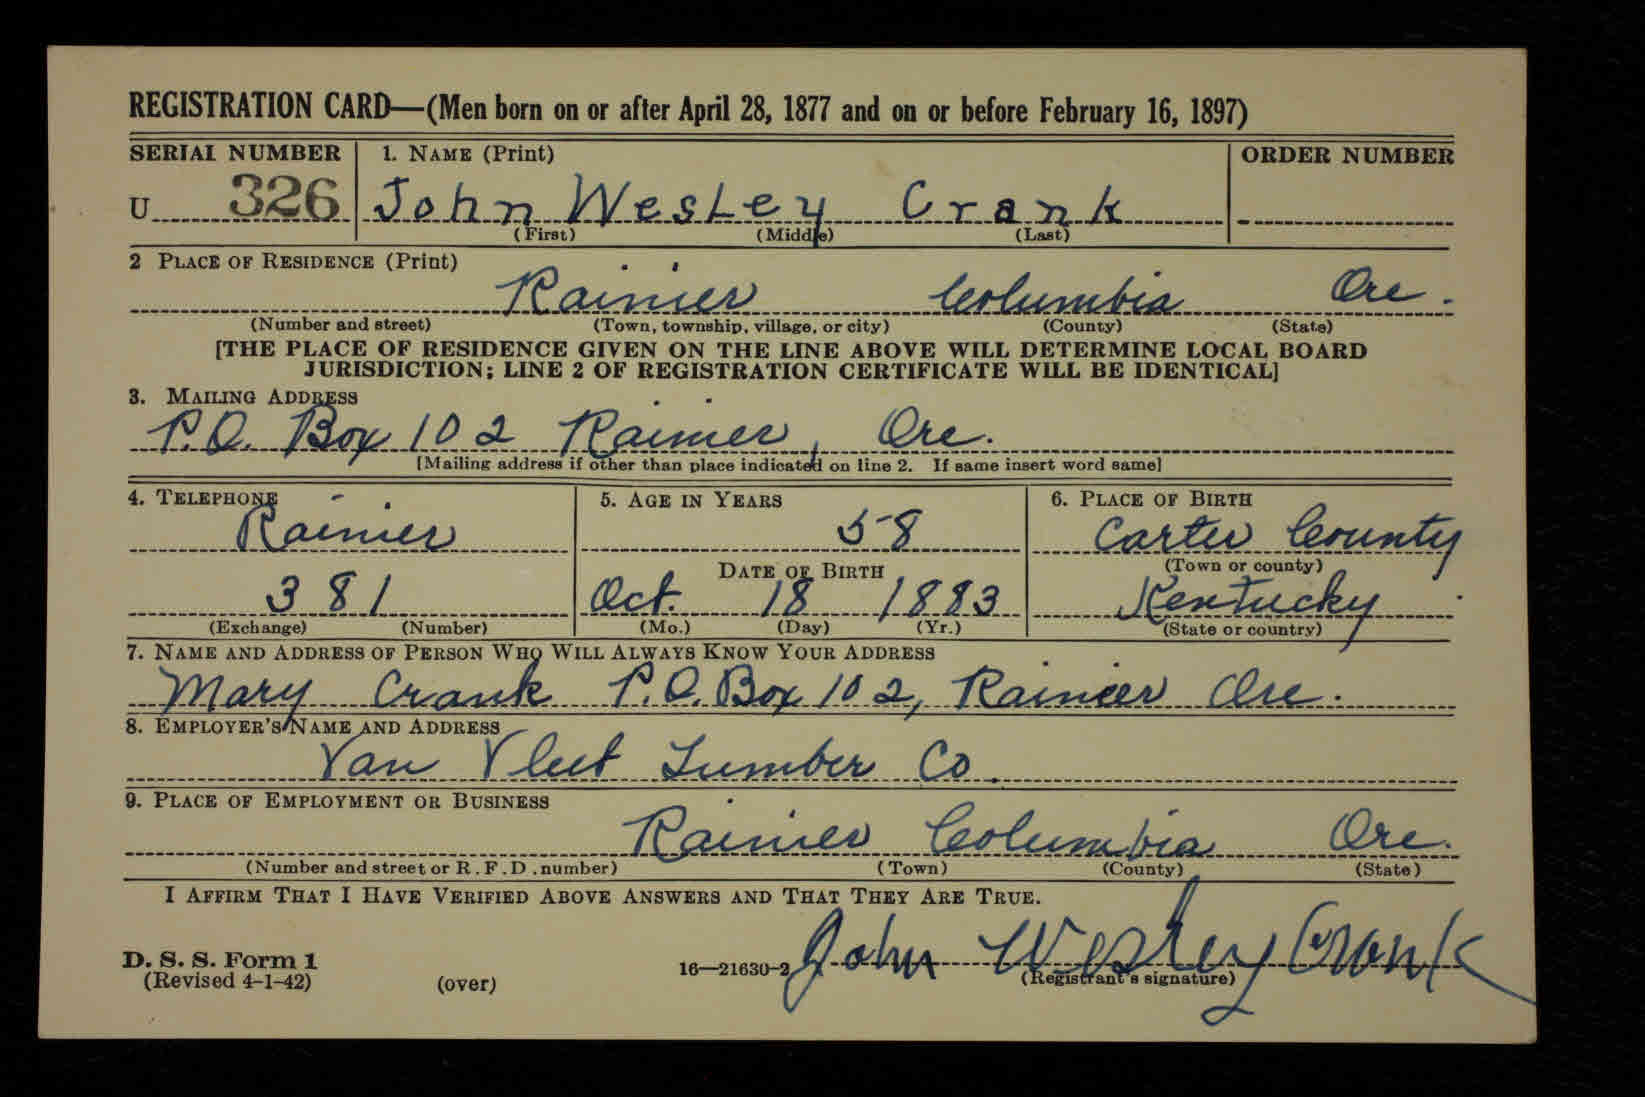 REGISTRATION CARD—(Men born on or after April 28, 1877 and on or before February 16, 1897)
SERIAL NUMBER 1. NAME (Print) ORDER NUMBER
U 326 John Wesley Crank
(First) (Middle) (Last)
2 PLACE OF RESIDENCE (Print)
Rainier Columbia Ore.
(Number and street) (Town, township, village, or city) (County) (State)
[THE PLACE OF RESIDENCE GIVEN ON THE LINE ABOVE WILL DETERMINE LOCAL BOARD
JURISDICTION; LINE 2 OF REGISTRATION CERTIFICATE WILL BE IDENTICAL]
3. MAILING ADDRESS
P.O. Box 102 Rainier, Ore.
[Mailing address if other than place indicated on line 2. If same insert word same]
4. TELEPHONE 5. AGE IN YEARS 6. PLACE OF BIRTH
Rainier 58 Carter County
DATE OF BIRTH (Town or county)
381 Oct. 18 1883 Kentucky
(Exchange) (Number) (Mo.) (Day) (Yr.) (State or country)
7. NAME AND ADDRESS OF PERSON WHO WILL ALWAYS KNOW YOUR ADDRESS
Mary Crank P.O. Box 102, Rainier Ore.
8. EMPLOYER'S NAME AND ADDRESS
Van Vleet Lumber Co.
9. PLACE OF EMPLOYMENT OR BUSINESS
Rainier Columbia Ore.
(Number and street or R. F. D. number) (Town) (County) (State)
I AFFIRM THAT I HAVE VERIFIED ABOVE ANSWERS AND THAT THEY ARE TRUE.
John Wesley Crank
D. S. S. Form 1 16—21630-2 (Registrant's signature)
(Revised 4-1-42) (over)